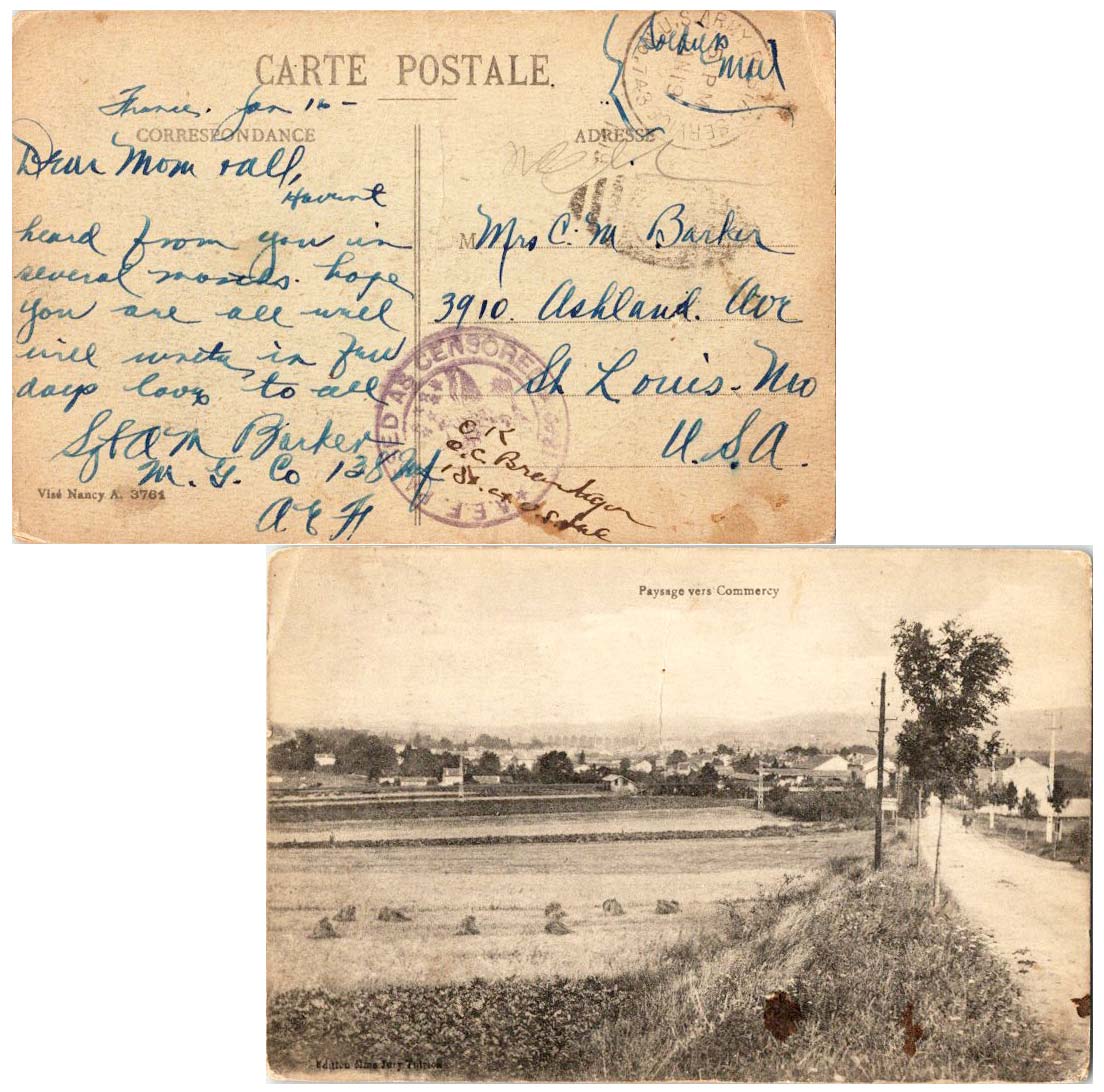 CARTE POSTALE
Soldiers
Mail
U.S. ARMY
PM
France. Jan 16 -
CORRESPONDANCE
ADRESSE
Dear Mom & all,
Havent
heard from you in
several months. hope
you are all well
will write in few
days love to all
Sgt A M Barker
M. G. Co 138 Inf
A E F
Visé Nancy A. 3761
M Mrs C. M Barker
3910. Ashland. Ave
St Louis - Mo
U.S.A.
A.E.F. PASSED AS CENSORED
OK
Paysage vers Commercy
Edition